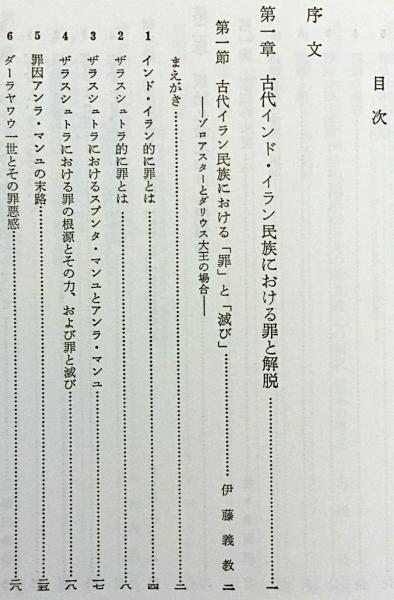 目次
序文
第一章 古代インド・イラン民族における罪と解脱……一
第一節 古代イラン民族における「罪」と「滅び」……伊藤義教…二
――ゾロアスターとダリウス大王の場合――
まえがき……二
1 インド・イラン的に罪とは……四
2 ザラスシュトラ的に罪とは……八
3 ザラスシュトラにおけるスプンタ・マンユとアンラ・マンユ……一七
4 ザラスシュトラにおける罪の根源とその力、および罪と滅び……一八
5 罪因アンラ・マンユの末路……三五
6 ダーラヤワウ一世とその罪悪感……